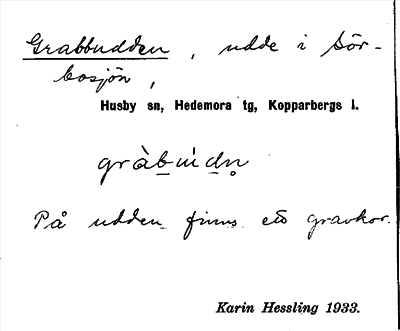 Grabbudden, udde i Sör-
bosjön,
Husby sn, Hedemora tg, Kopparbergs l.
På udden finns ett gravkor.
Karin Hessling 1933.